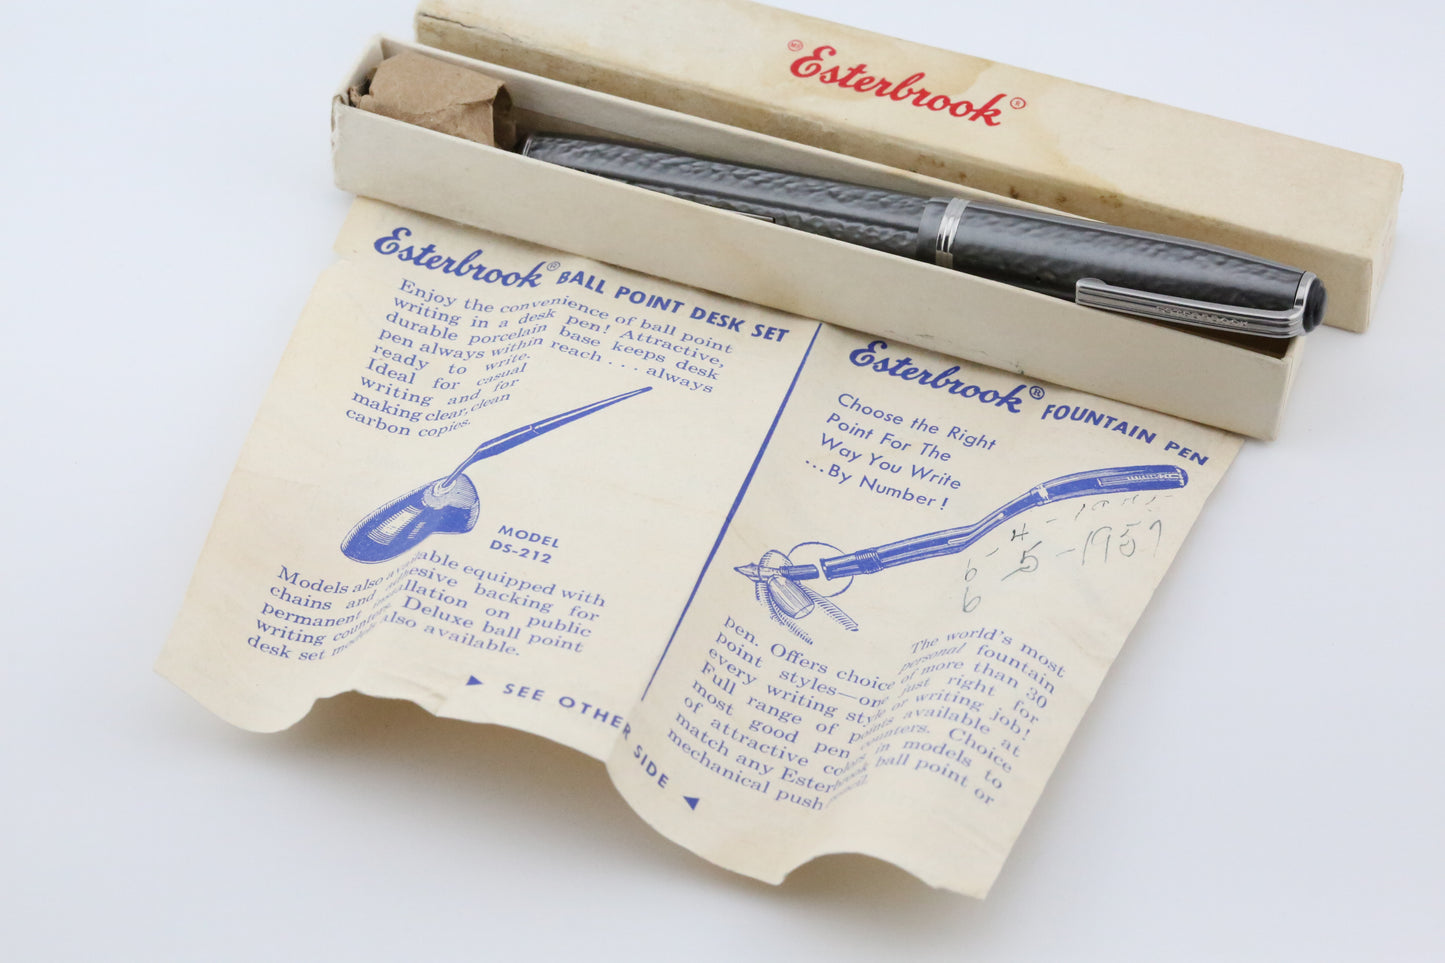 Esterbrook®
ESTERBROOK
Esterbrook® BALL POINT DESK SET
Enjoy the convenience of ball point
writing in a desk pen! Attractive,
durable porcelain base keeps desk
pen always within reach . . . always
ready to write.
Ideal for casual
writing and for
making clear, clean
carbon copies.
MODEL
DS-212
Models also available equipped with
chains and adhesive backing for
permanent installation on public
writing counters. Deluxe ball point
desk set models also available.
▶ SEE OTHER SIDE ◀
Esterbrook® FOUNTAIN PEN
Choose the Right
Point For The
Way You Write
...By Number!
6 - 4 -
6 5 - 1957
The world's most
personal fountain
pen. Offers choice of more than 30
point styles—one just right for
every writing style or writing job!
Full range of points available at
most good pen counters. Choice
of attractive colors in models to
match any Esterbrook ball point or
mechanical push pencil.